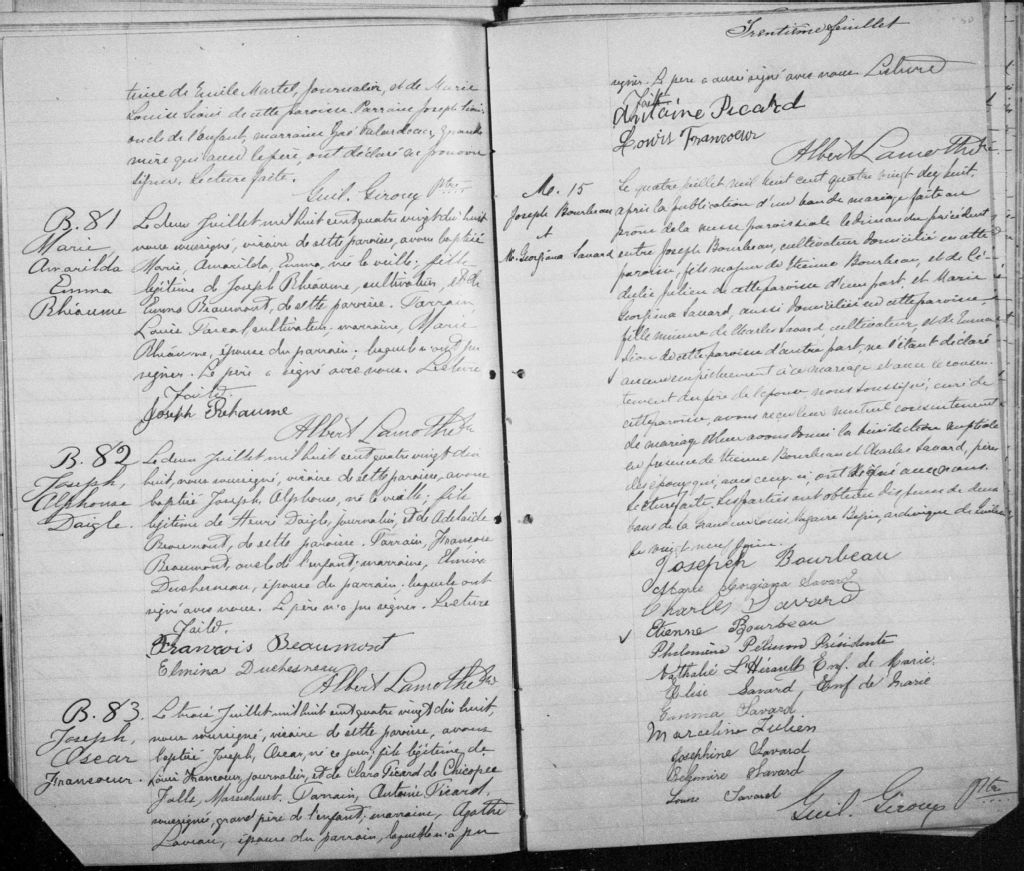 time de Emile Martel, Journalier, et de Marie
Louise de cette paroisse. Parrain Joseph
oncle de l'enfant, marraine Falardeau, grande
mère qui ainsi le père, ont déclaré ne pouvoir
signer. Lecture faite.
Guil. Giroux Ptre
B. 81
Marie
Amarilda
Emma
Rhéaume
Le deux Juillet mil huit cent quatre vingt dix huit
nous soussigné, vicaire de cette paroisse, avons baptisé
Marie, Amarilda, Emma, née la veille, fille
légitime de Joseph Rhéaume, cultivateur, et de
Beaumont, de cette paroisse. Parrain
Louis cultivateur, marraine, Marie
Rhéaume, épouse du parrain, lesquels n'ont pu
signer. Le père a signé avec nous. Lecture
Faite.
Joseph Rehaume
Albert Lamothe Ptre
B. 82
Joseph,
Alphonse
Daigle.
Le deux Juillet mil huit cent quatre vingt dix
huit, nous soussigné, vicaire de cette paroisse, avons
baptisé Joseph, Alphonse, né la veille, fils
légitime de Henri Daigle, journalier, et de Adelaide
Beaumont, de cette paroisse. Parrain, François
Beaumont, oncle de l'enfant, marraine, Elmina
Duchesneau, épouse du parrain, lesquels ont
signé avec nous. Le père n'a pu signer. Lecture
Faite.
Francois Beaumont
Elmina Duchesneau
Albert Lamothe Ptre
B. 83.
Joseph,
Oscar
Francoeur.
Le trois Juillet mil huit cent quatre vingt dix huit,
nous soussigné, vicaire de cette paroisse, avons
baptisé Joseph, Oscar, né ce jour, fils légitime de
Louis Francoeur, journalier, et de Clara Picard de Chicopee
Falls, Massachusett. Parrain, Antoine Picard,
soussigné, grand père de l'enfant, marraine, Agathe
épouse du parrain, laquelle n'a pu
Trentième feuillet
signer. Le père a aussi signé avec nous. Lecture
Faite
Antoine Picard
Louis Francoeur
Albert Lamothe Ptre
M. 15
Joseph Bourbeau
et
M. Georgiana Savard
Le quatre juillet mil huit cent quatre vingt dix huit,
après la publication d'un ban de mariage faite au
prone de la messe paroissiale le dimanche précédent
entre Joseph Bourbeau, cultivateur domicilié en cette
paroisse, fils majeur de Etienne Bourbeau, et de
Julien de cette paroisse d'une part, et Marie
Georgiana Savard, aussi domiciliée en cette paroisse,
fille mineure de Charles Savard cultivateur, et de Emma
de cette paroisse d'autre part, ne s'étant déclaré
aucun empêchement à ce mariage et avec le consen-
tement du père de l'épouse nous soussigné, curé de
cette paroisse, avons reçu leur mutuel consentement
de mariage et leur avons donné la bénédiction nuptiale
en présence de Etienne Bourbeau et Charles Savard, pères
des époux qui, avec ceux-ci, ont signé avec nous.
Lecture faite. Les parties ont obtenu dispense de deux
bans de la part de Bégin, archevêque de
le vingt neuf juin.
Joseph Bourbeau
Marie Georgiana Savard
Charles Savard
Etienne Bourbeau
Philomène Présidente
Nathalie L'Hérault Enf. de Marie.
Elise Savard, Enf de Marie
Emma Savard
Marceline Julien
Josephine Savard
Savard
Louise Savard
Guil. Giroux Ptre